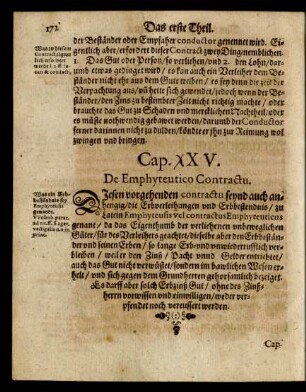 172 Das erste Theil.
der Beständer oder Empfaher conductor genennet wird. Ei-
gentlich aber / erfordert dieser Contract zwey Ding / nemblichen.
1. Das Gut oder Person / so verliehen / vnd 2. den Lohn / dar-
umb etwas gedinget wird / es kan auch ein Verleiher dem Be-
ständer nicht ehe auß dem treiben / es sey denn die zeit der
Verpachtung auß / oder hette sich gewendet / jedoch wenn der Be-
ständer / den Zins zu bestimbter Zeit nicht richtig machte / oder
brauchte das Gut zu Schaden vnd mercklichem Nachtheil / oder
es müste nothwendig gebawet werden / darumb der Conductor
ferner darinnen nicht zu dulden / köndte er jhn zur Reumung wol
zwingen vnd dringen.
Cap. XXV.
De Emphyteutico Contractu.
Diesen vorgehenden contractu seynd auch an-
hengig / die Erbverleihungen vnd Erbbeständnis / zu
Latein Emphyteusis vel contractus Emphyteuticus
genant / da das Eigenthumb der verliehenen vnbeweglichen
Güter / für des Verleihers geachtet / dieselbe aber den Erbbestän-
der vnd seinen Erben / so lange Erb- vnd vnwiederrufflich ver-
bleiben / weiler den Zinß / Pacht vnnd Gelder entrichtet /
auch das Gut nicht verwüstet / sondern im bawlichen Wesen er-
helt / vnd sich gegen dem Grundherren gehorsamlich bezeiget.
Es darff aber solch Erbzinß Gut / ohne des Zinß-
herrn vorwissen vnd einwilligen / weder ver-
pfendet noch vereussert werden.
Cap.
Was zu diesem
Contract eigent-
lich erfordert
Was ein Erb-
beständnis sey
Emphyteusis
genandt.